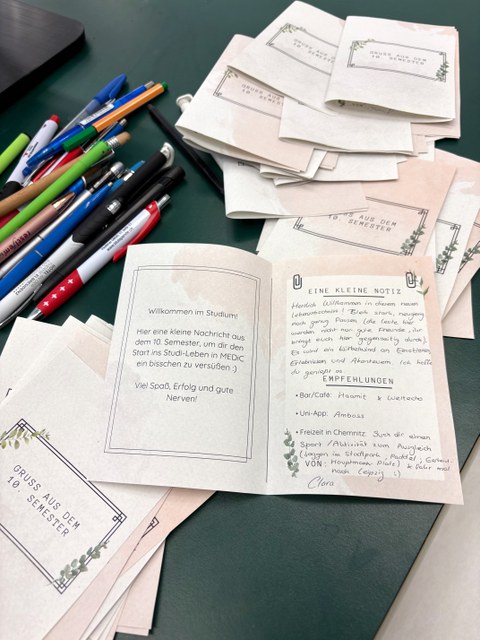 GRUSS AUS DEM
10. SEMESTER
GRUSS AUS DEM
10. SEMESTER
GRUSS AUS
10. SEM
GRUSS AUS DEM
10. SEMESTER
Willkommen im Studium!
Hier eine kleine Nachricht aus
dem 10. Semester, um dir den
Start ins Studi-Leben in MEDiC
ein bisschen zu versüßen :)
Viel Spaß, Erfolg und gute
Nerven!
EINE KLEINE NOTIZ
Herzlich Willkommen in diesem neuen
Lebensabschnitt! Bleib stark, genieß
noch ganz Pausen (die Leute hier
werden nicht nur gute Freunde, ihr
bringt euch hier gegenseitig durch).
Es wird ein
Erlebnissen und Abenteuern. Ich hoffe
du genießt es.
EMPFEHLUNGEN
• Bar/Café: Haamit & Weltecho
• Uni-App: Amboss
• Freizeit in Chemnitz: Such dir einen
Sport / Aktivität zum Ausgleich
(Joggen im Stadtpark, Paddel,
VON: Hauptmann Platz) & fahr mal
nach Leipzig :)
Clara
GRUSS AUS DEM
10. SEMESTER